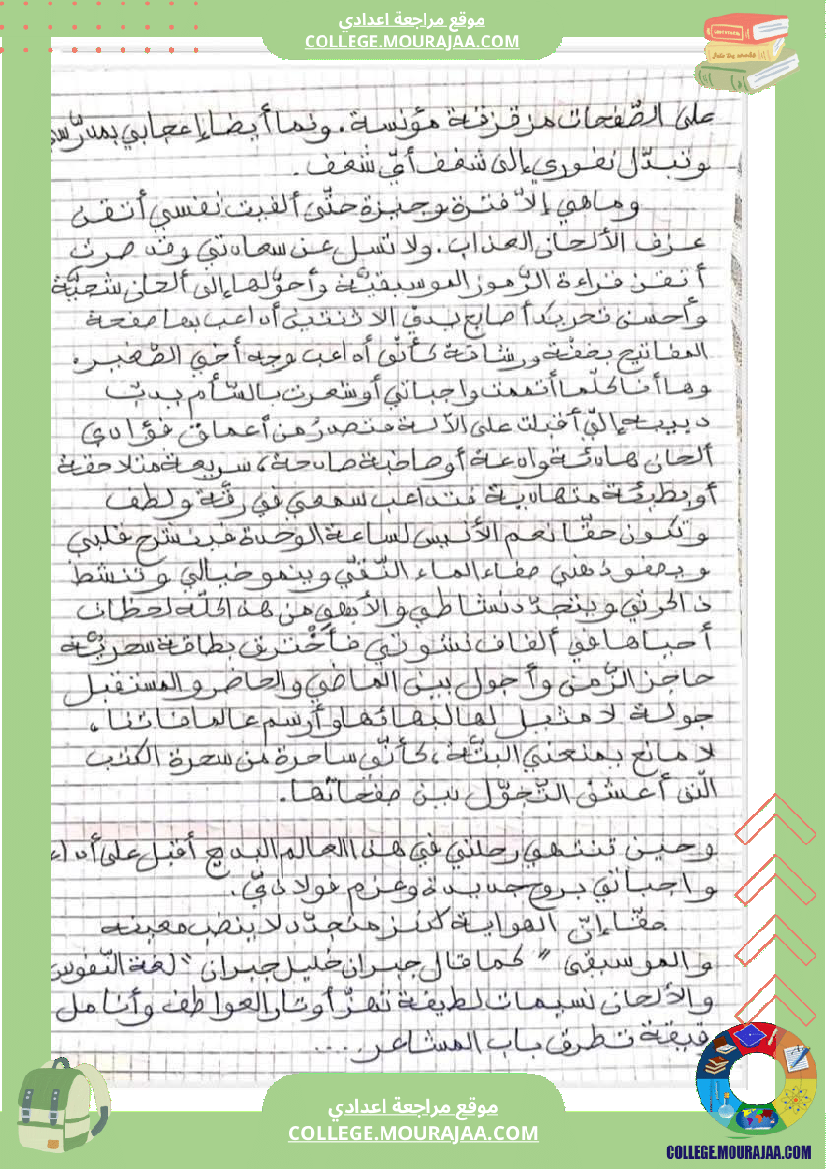 موقع مراجعة اعدادي
COLLEGE.MOURAJAA.COM
على الصّفحات مزقزقة مؤنسة. ونما أيضا إعجابي
وتبدّل نفوري إلى شغف أيّ شغف.
وماهي إلاّ فترة وجيزة حتّى ألفيت نفسي أتقن
عزف الألحان العذاب. ولا تسل عن سعادتي وقد صرت
أتقن قراءة الرّموز الموسيقيّة وأحوّلها إلى ألحان شجيّة
وأحسن تحريك أصابع يديّ الاثنتين أداعب بها صفحة
المفاتيح بخفّة ورشاقة كأنّي أداعب وجه أخي الصّغير.
وها أنا كلّما أتممت واجباتي أو شعرت بالسّأم يدبّ
دبيبه إليّ أقبلت على الآلة فتصدرُ من أعماق فؤادي
ألحان هادئة وادعة أو صاخبة صادحة، سريعة متلاحقة
أو بطيئة متهادية تداعب سمعي في رقّة ولطف
وتكون حقّا نعم الأنيس لساعة الوحدة فينشرح قلبي
ويصفو ذهني صفاء الماء النّقيّ وينمو خيالي وتنشط
ذاكرتي ويتجدّد نشاطي والأبهى من هذا كلّه لحظات
أحياها في ألفاف نشوتي فأَخْترق بطاقة سحريّة
حاجز الزّمن وأجول بين الماضي والحاضر والمستقبل
جولة لا مثيل لها لبهائها وأرسم عالما فاتنا.
لا مانع يمنعني البتّة، كأنّي ساحرة من سحرة الكتب
الّتي أعشق التّجوّل بين صفحاتها.
وحين تنتهي رحلتي في هذا العالم البديع أقبل على
واجباتي بروح جديدة وعزم فولاذيّ.
حقّا إنّ الهواية كنز متجدّد لا ينضب معينه
والموسيقى " كما قال جبران خليل جبران " لغة النّفوس
والألحان نسيمات لطيفة تهزّ أوتار العواطف وأنامل
رقيقة تطرق باب المشاعر....
موقع مراجعة اعدادي
COLLEGE.MOURAJAA.COM
COLLEGE.MOURAJAA.COM